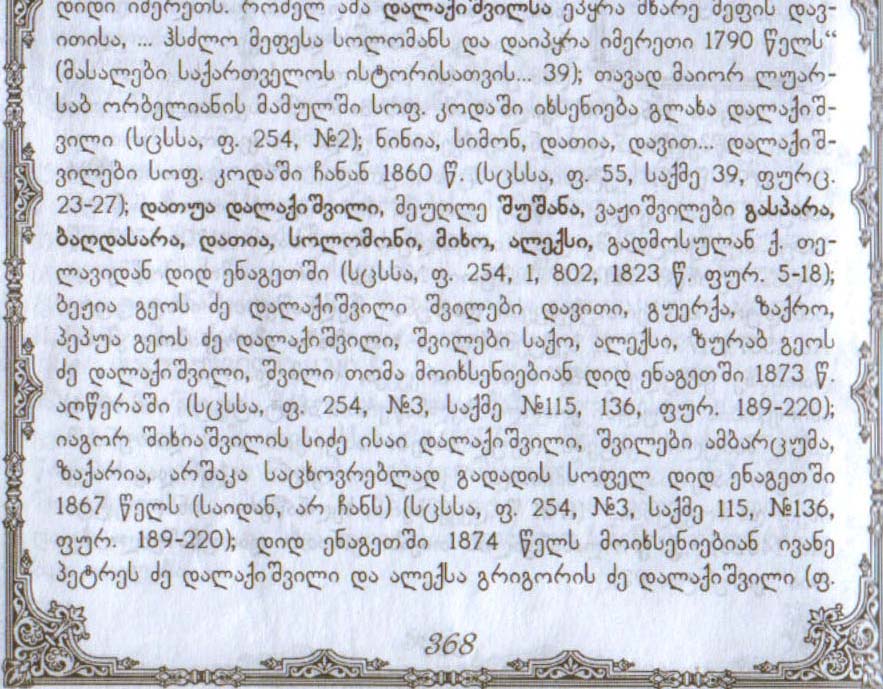 დიდი იმერეთს. რომელ ამა დალაქიშვილსა ეპყრა მხარე მეფის დავ-
ითისა, ... ჰსძლო მეფესა სოლომანს და დაიპყრა იმერეთი 1790 წელს“
(მასალები საქართველოს ისტორისათვის... 39); თავად მაიორ ლუარ-
საბ ორბელიანის მამულში სოფ. კოდაში იხსენიება გლახა დალაქიშ-
ვილი (სცსსა, ფ. 254, №2); ნინია, სიმონ, დათია, დავით... დალაქიშ-
ვილები სოფ. კოდაში ჩანან 1860 წ. (სცსსა, ფ. 55, საქმე 39, ფურც.
23-27); დათუა დალაქიშვილი, მეუღლე შუშანა, ვაჟიშვილები გასპარა,
ბაღდასარა, დათია, სოლომონი, მიხო, ალექსი, გადმოსულან ქ. თე-
ლავიდან დიდ ენაგეთში (სცსსა, ფ. 254, 1, 802, 1823 წ. ფურ. 5-18);
ბეჟია გეოს ძე დალაქიშვილი შვილები დავითი, გუერქა, ზაქრო,
პეპუა გეოს ძე დალაქიშვილი, შვილები საქო, ალექსი, ზურაბ გეოს
ძე დალაქიშვილი, შვილი თომა მოიხსენიებიან დიდ ენაგეთში 1873 წ.
აღწერაში (სცსსა, ფ. 254, №3, საქმე №115, 136, ფურ. 189-220);
იაგორ შიხიაშვილის სიძე ისაი დალაქიშვილი, შვილები ამბარცუმა,
ზაქარია, არშაკა საცხოვრებლად გადადის სოფელ დიდ ენაგეთში
1867 წელს (საიდან, არ ჩანს) (სცსსა, ფ. 254, №3, საქმე 115, №136,
ფურ. 189-220); დიდ ენაგეთში 1874 წელს მოიხსენიებიან ივანე
პეტრეს ძე დალაქიშვილი და ალექსა გრიგორის ძე დალაქიშვილი (ფ.
368